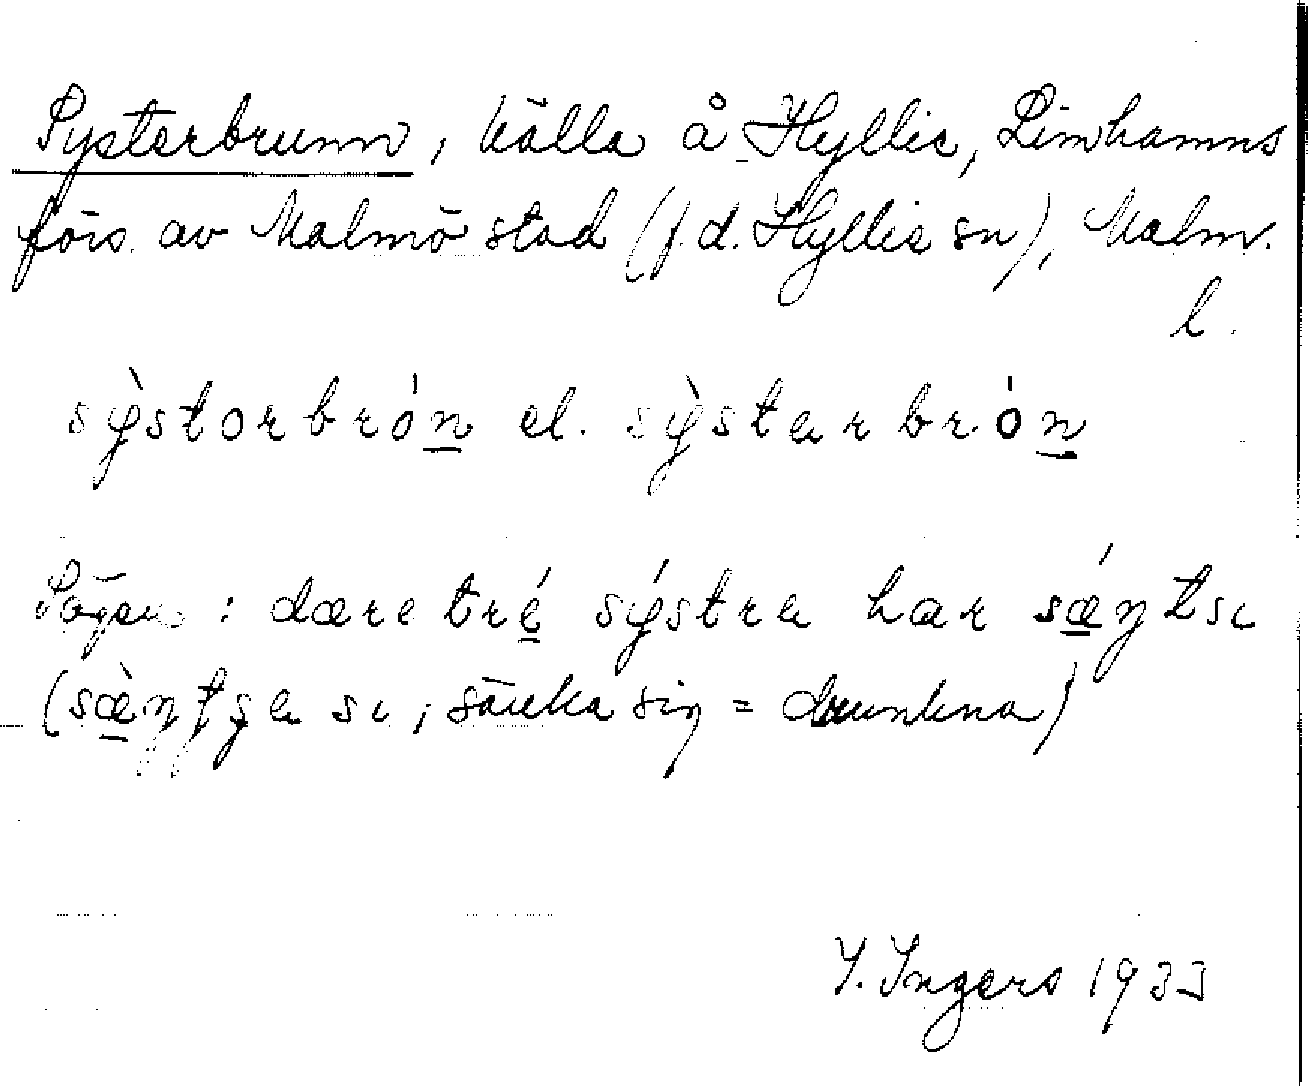 Systerbrunn, källa å Hyllie, Limhamns
förs. av Malmö stad (f.d. Hyllie sn), Malm.
l.
sỳstorbrón el. sỳstarbrón
Sägen: dære tré sýstra har sǽŋt si
(sæ̀ŋtʂa si, sänka sig = drunkna)
I. Ingers 1933